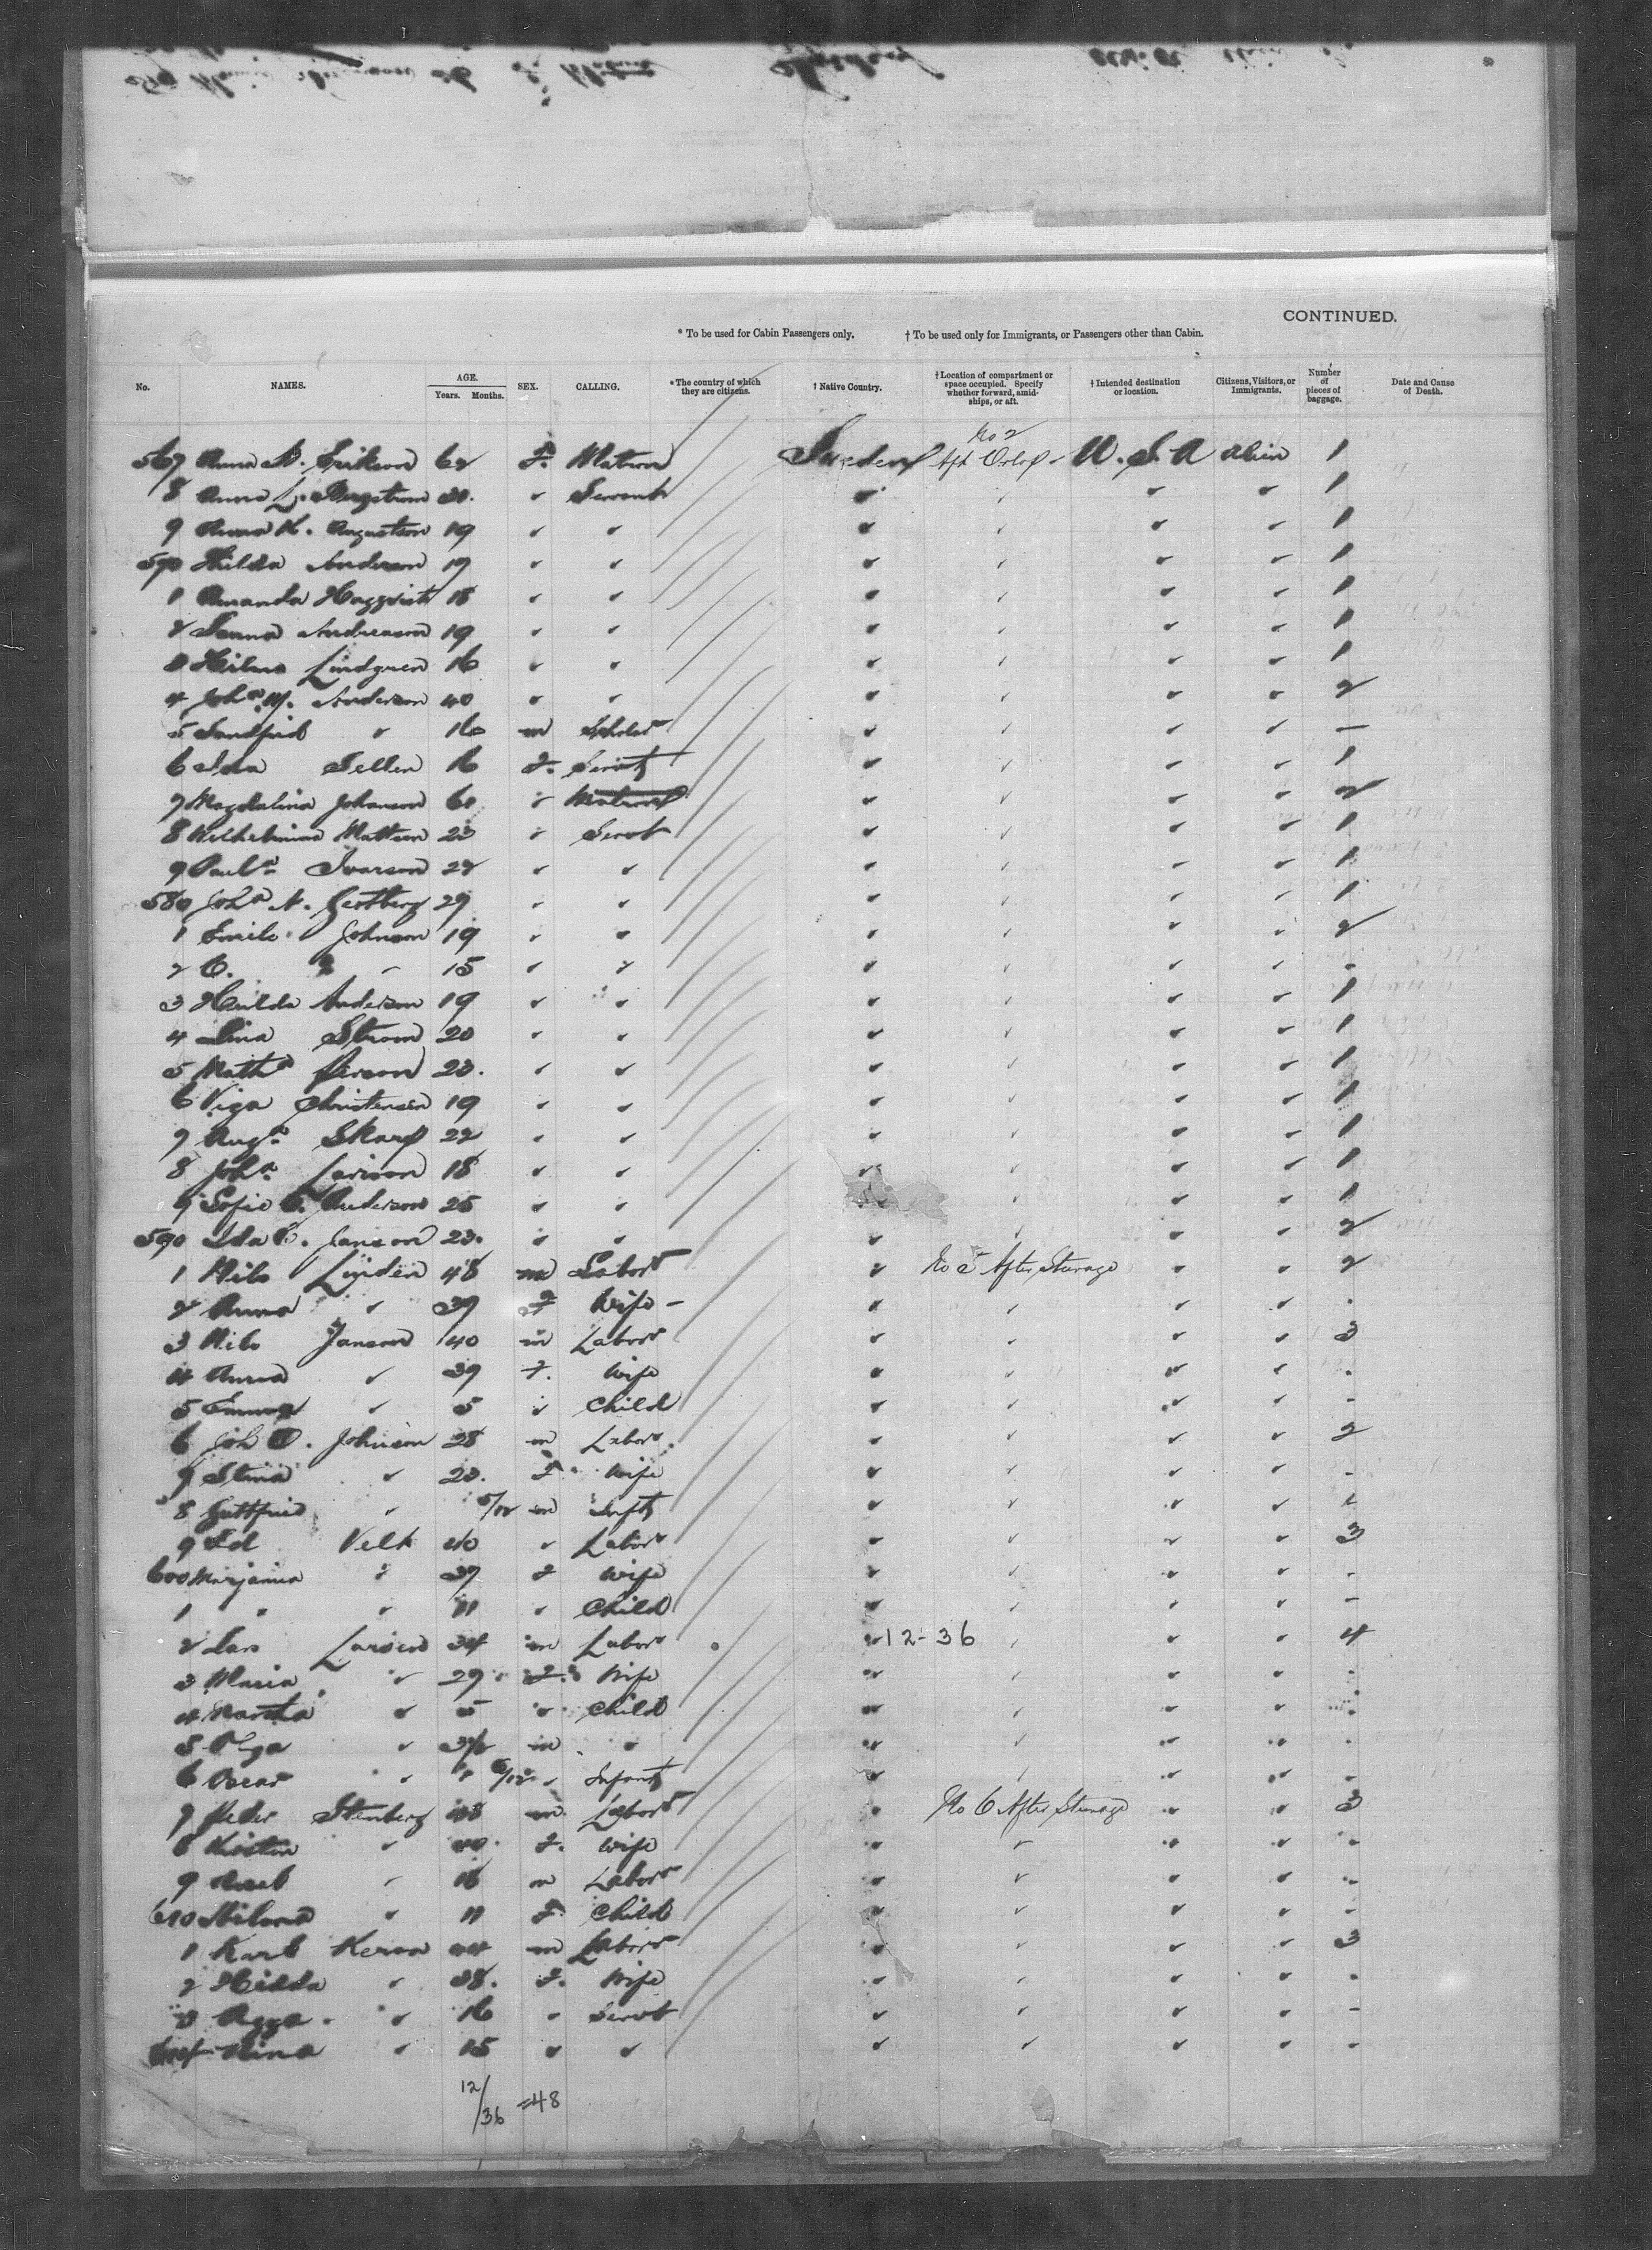 CONTINUED.
* To be used for Cabin Passengers only. † To be used only for Immigrants, or Passengers other than Cabin.
No. NAMES. AGE. Years. Months. SEX. CALLING. * The country of which they are citizens. † Native Country. † Location of compartment or space occupied. Specify whether forward, amidships, or aft. † Intended destination or location. Citizens, Visitors, or Immigrants. Number of pieces of baggage. Date and Cause of Death.
No 2
567 Anna B. Erikson 62 F. Matron Sweden Aft Orlop U.S.A Alien 1
8 Anna L. Bergstrom 20. " Servant " " " " 1
9 Anna K. Augustson 19 " " " " " " 1
570 Hilda Anderson 19 " " " " " " 1
1 Amanda Hagqvist 18 " " " " " " 1
2 Andreason 19 " " " " " " 1
3 Hilma Lindgren 16 " " " " " " 1
4 Joha M. Anderson 40 " " " " " " 2
5 " 16 m " " " " —
6 Ida Tellen 16 F. Servt " " " " 1
7 Magdalina Johanson 60 " Matron " " " " 2
8 Wilhelmina Mattson 23 " Servt " " " " 1
9 Paula Ivarson 22 " " " " " " 1
580 Joha N. 29 " " " " " " 1
1 Emile Johnson 19 " " " " " " 2
2 C. " 15 " " " " " " -
3 Hulda Anderson 19 " " " " " " 1
4 Lina Strom 20 " " " " " " 1
5 Matha Person 23. " " " " " " 1
6 Viga Christensen 19 " " " " " " 1
7 Auga Skarp 22 " " " " " " 1
8 Joha Larson 18 " " " " " " 1
9 Sofie C. Anderson 25 " " " " " " 1
590 Ida C. Janson 23. " " " " " " 2
1 Nils Linden 48 m Labor " No 5 After Steerage " " 2
2 Anna " 39 F Wife - " " " " -
3 Nils Janson 40 m Labor " " " " 3
4 Anna " 39 F. Wife " " " " -
5 Emma " 5 " Child " " " " -
6 Joh O. Johnson 28 m Labor. " " " " 2
7 Stina " 23. F. Wife " " " " -
8 Gottfried " 5/12 m Inft " " " " -
9 Ed Velk 40 " Labor " " " " 3
600 " 39 F Wife " " " " -
1 " " 11 " Child " " " " -
2 Lars Larsen 34 m Labor " 12-36 " " " 4
3 Maria " 29 F. Wife " " " " -
4 Martha " 5 " Child " " " " -
5 " m " " " " " -
6 Oscar " " Infant " " " " -
7 Peder Stenberg 48 m Labor " No 6 After Steerage " " 3
8 Kirstin " 40. F. Wife " " " " -
9 Axel " 16 m Labor " " " " -
610 Hilma " 11 F Child " " " " -
1 Karl Kerva 44 m Labor " " " " 3
2 Hilda " 38. F. Wife " " " " -
3 " 16 " Servt " " " " -
614 Nina " 15 " " " " " " -
12/36 = 48